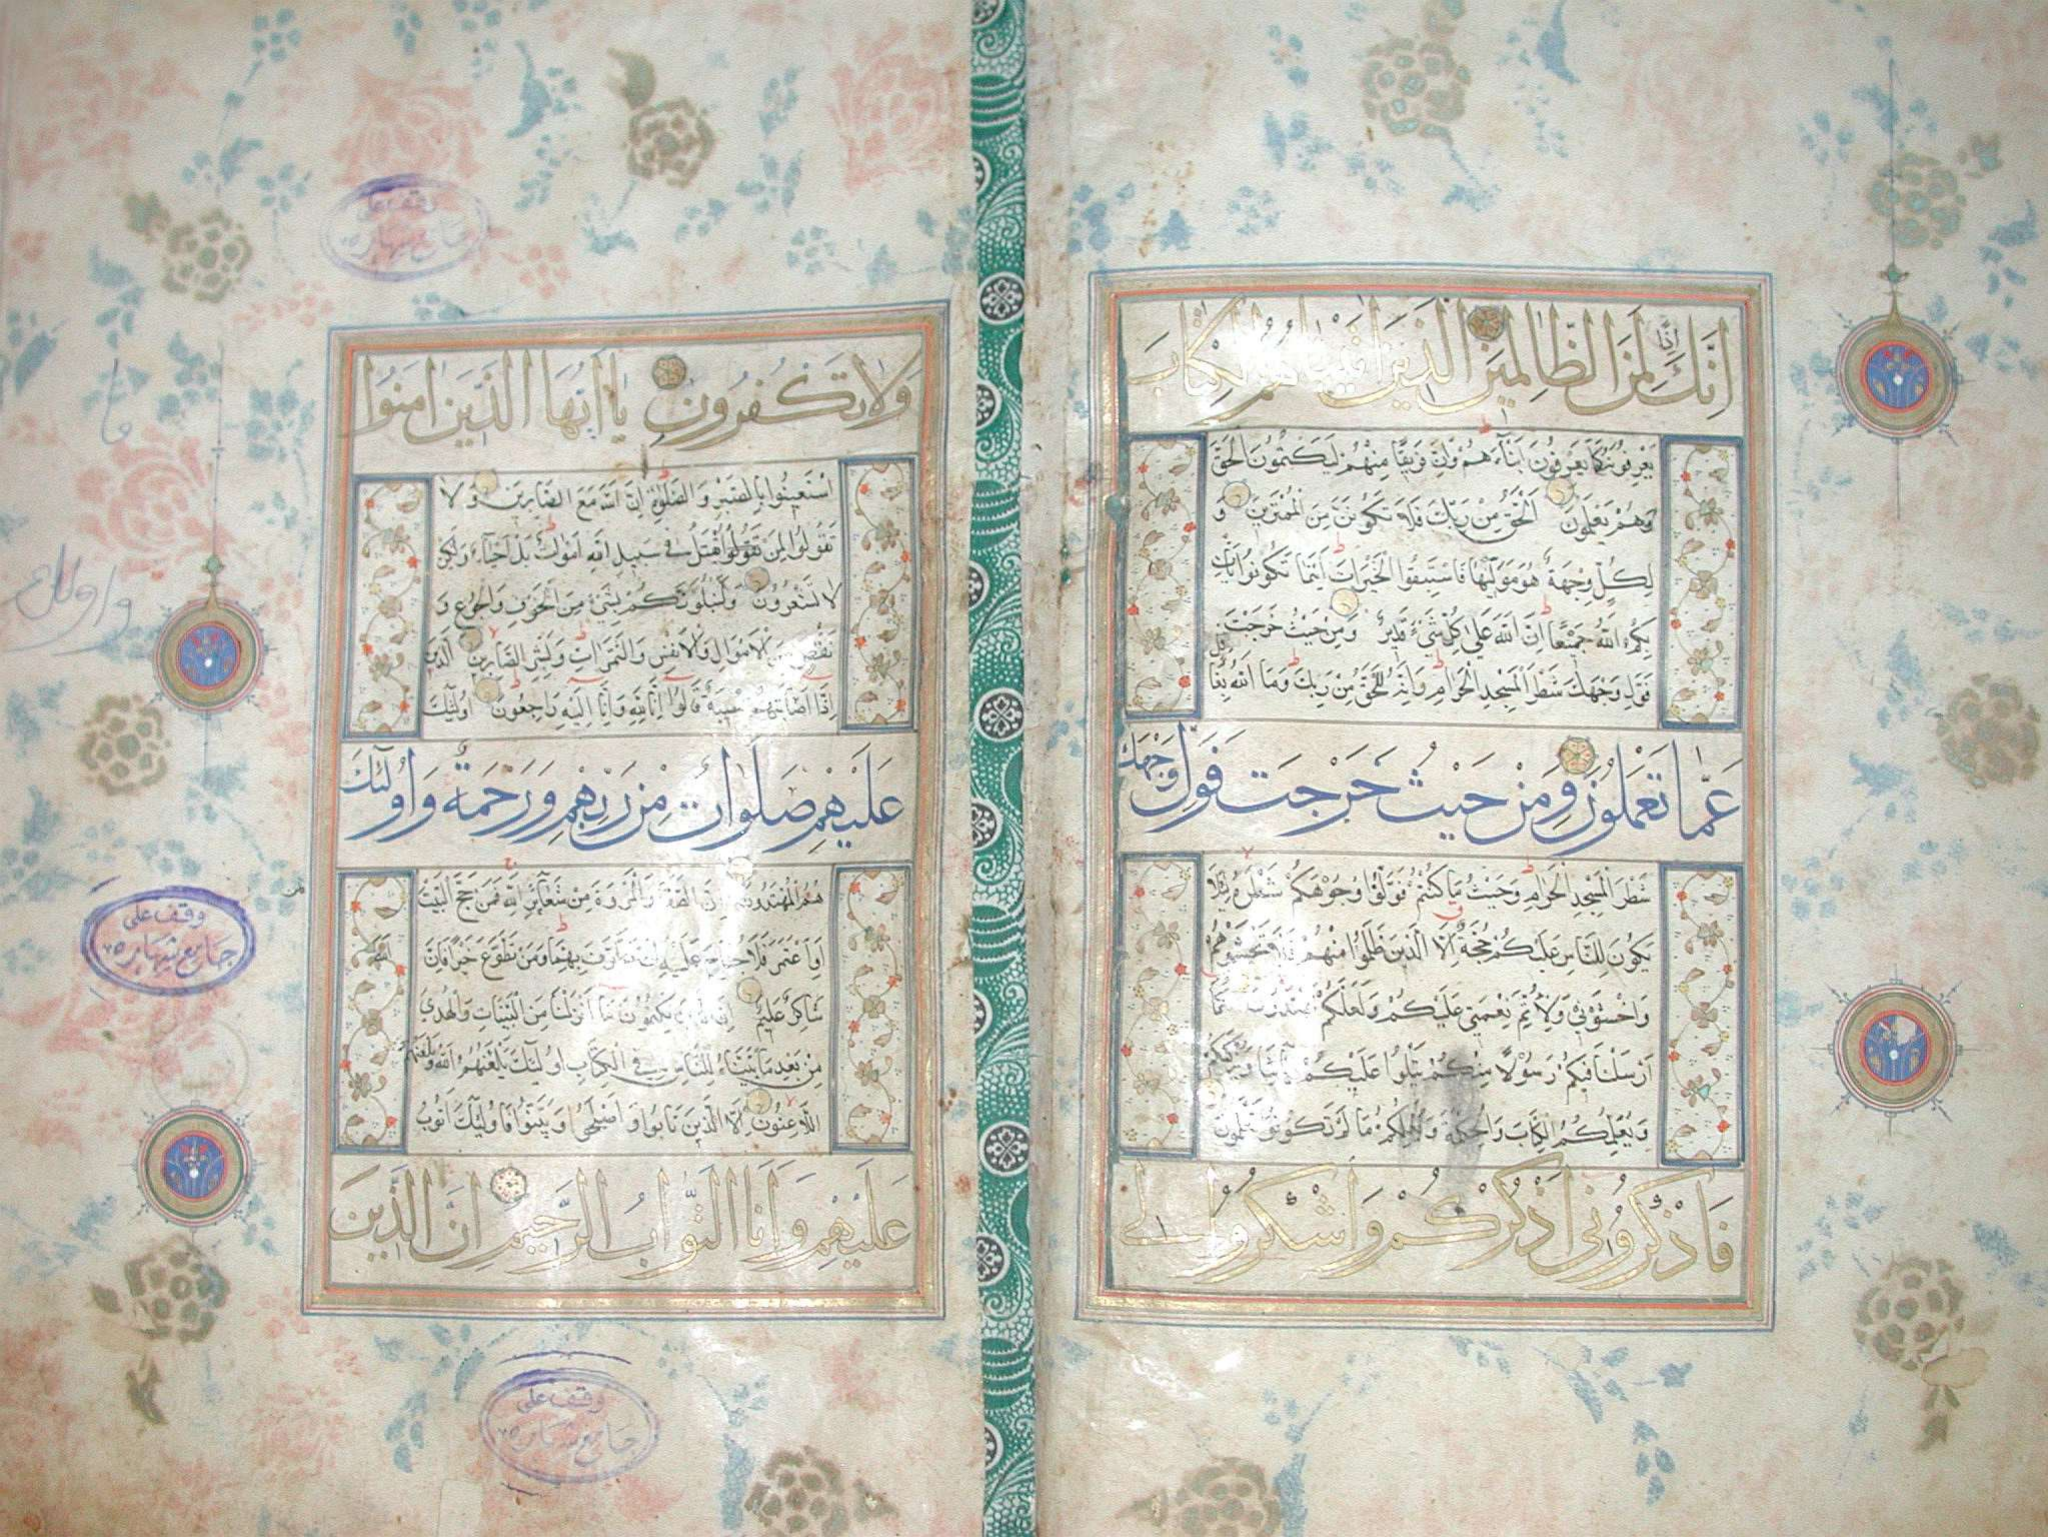 انك اذا لمن الظالمين الذين اتيناهم الكتاب
يعرفونه كما يعرفون ابناءهم وان فريقا منهم ليكتمون الحق
وهم يعلمون الحق من ربك فلا تكونن من الممترين و
لكل وجهة هو موليها فاستبقوا الخيرات اينما تكونوا يات
بكم الله جميعا ان الله على كل شيء قدير ومن حيث خرجت
فول وجهك شطر المسجد الحرام وانه للحق من ربك وما الله بغافل
عما تعملون ومن حيث خرجت فول وجهك
شطر المسجد الحرام وحيث ما كنتم فولوا وجوهكم شطره لئلا
يكون للناس عليكم حجة الا الذين ظلموا منهم فلا تخشوهم
واخشوني ولاتم نعمتي عليكم ولعلكم تهتدون كما
ارسلنا فيكم رسولا منكم يتلوا عليكم اياتنا ويزكيكم
ويعلمكم الكتاب والحكمة ويعلمكم ما لم تكونوا تعلمون
فاذكروني اذكركم واشكروا لي
ولا تكفرون يا ايها الذين امنوا
استعينوا بالصبر والصلوة ان الله مع الصابرين ولا
تقولوا لمن يقتل في سبيل الله اموات بل احياء ولكن
لا تشعرون ولنبلونكم بشيء من الخوف والجوع و
نقص من الاموال والانفس والثمرات وبشر الصابرين الذين
اذا اصابتهم مصيبة قالوا انا لله وانا اليه راجعون اولئك
عليهم صلوات من ربهم ورحمة واولئك
هم المهتدون ان الصفا والمروة من شعائر الله فمن حج البيت
او اعتمر فلا جناح عليه ان يطوف بهما ومن تطوع خيرا فان
شاكر عليم ان الذين يكتمون ما انزلنا من البينات والهدى
من بعد ما بيناه للناس في الكتاب اولئك يلعنهم الله ويلعنهم
اللاعنون الا الذين تابوا واصلحوا وبينوا فاولئك اتوب
عليهم وانا التواب الرحيم ان الذين
وقف على
جامع
وقف على
جامع
وقف على
جامع